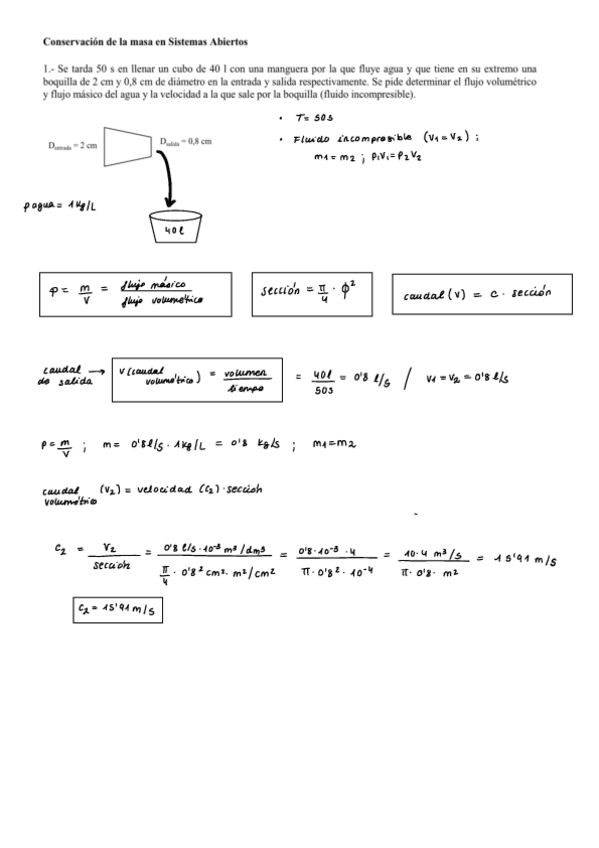 Conservación de la masa en Sistemas Abiertos
1.- Se tarda 50 s en llenar un cubo de 40 l con una manguera por la que fluye agua y que tiene en su extremo una
boquilla de 2 cm y 0,8 cm de diámetro en la entrada y salida respectivamente. Se pide determinar el flujo volumétrico
y flujo másico del agua y la velocidad a la que sale por la boquilla (fluido incompresible).
• T= 50s
Dentrada = 2 cm
Dsalida = 0,8 cm
• Fluido incompresible (V1=V2) ;
m1=m2 ; P1V1=P2V2
ρ agua = 1kg/L
40l
ρ = m/V = flujo másico/flujo volumétrico
sección = π/4 · ϕ²
caudal (V) = c · sección
caudal de salida → V (caudal volumétrico) = volumen/tiempo = 40l/50s = 0'8 l/s / V1 = V2 = 0'8 l/s
ρ = m/V ; m = 0'8l/s · 1kg/L = 0'8 kg/s ; m1=m2
caudal volumétrico (V2) = velocidad (c2) · sección
c2 = V2/sección = 0'8 l/s·10-3 m3/dm3 / π/4 · 0'8² cm²· m²/cm² = 0'8·10-3 · 4 / π·0'8²·10-4 = 10·4 m3/s / π·0'8· m2 = 15'91 m/s
c2 = 15'91 m/s